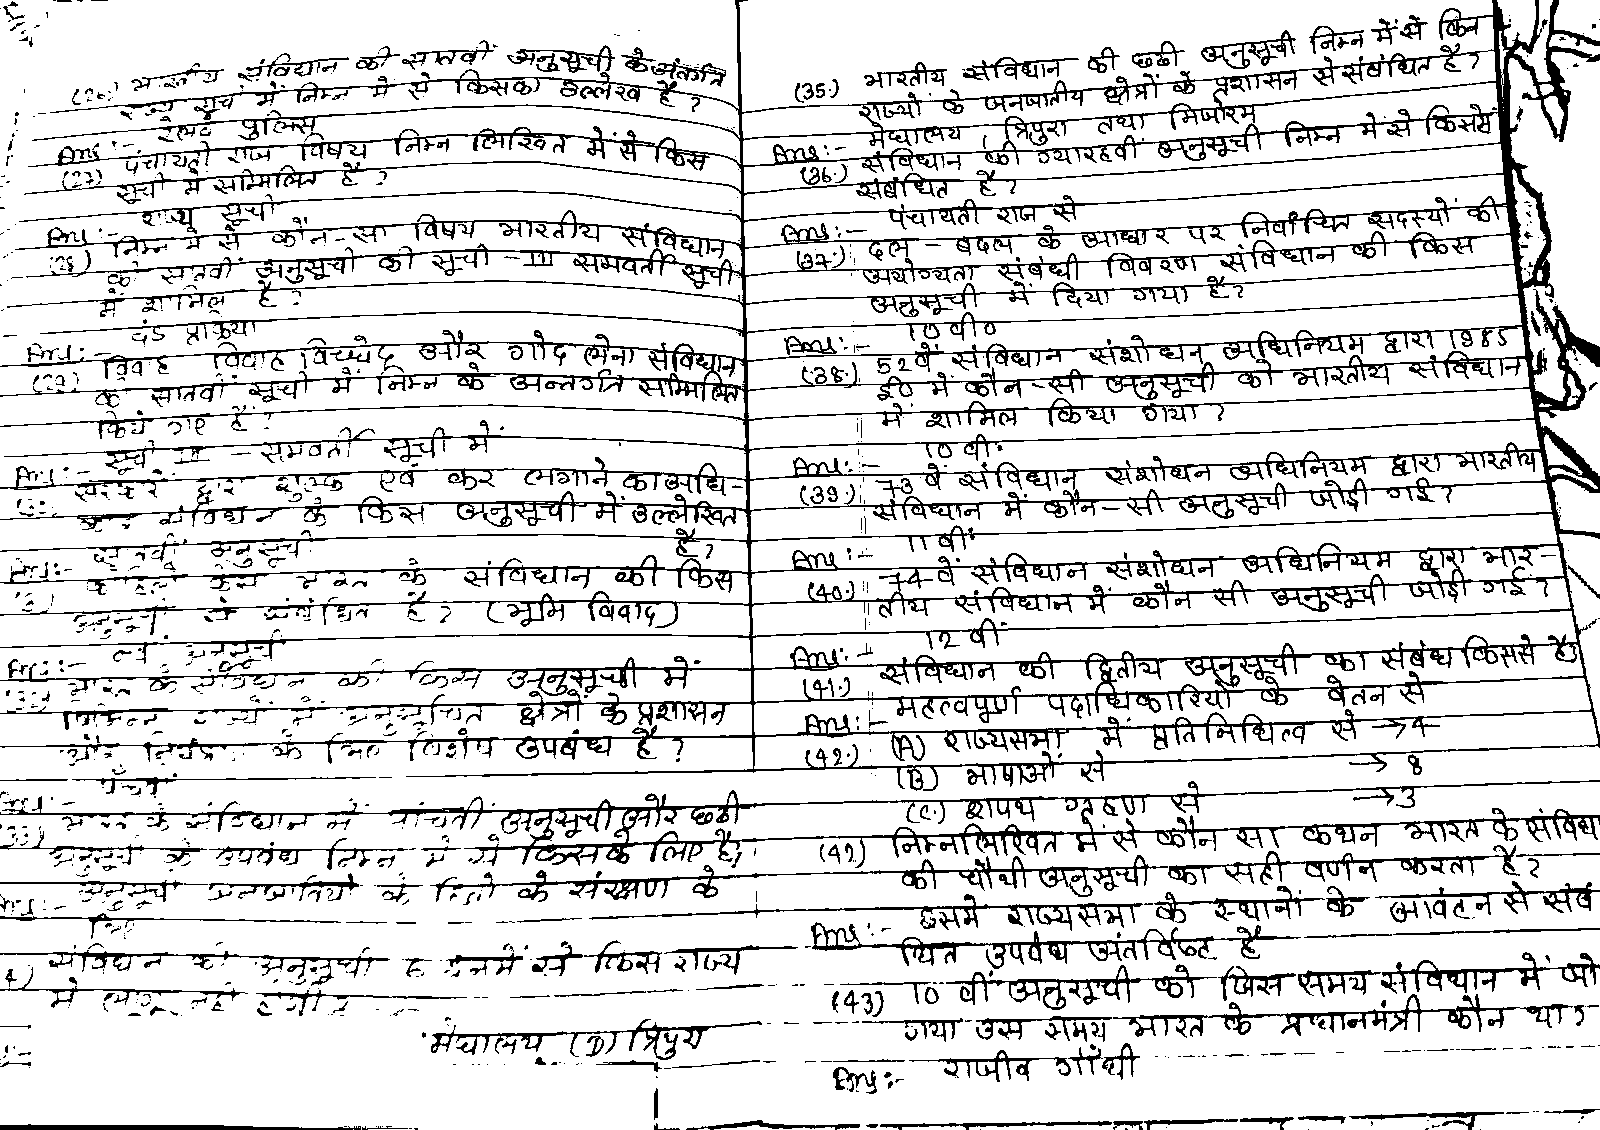 (26.) भारतीय संविधान की सातवीं अनुसूची के अंतर्गत
राज्य सूची में निम्न में से किसका उल्लेख है?
Ans:- रेलवे पुलिस
(27) पंचायती राज विषय निम्न लिखित में से किस
सूची में सम्मिलित है?
Ans:- राज्य सूची
(28) निम्न में से कौन-सा विषय भारतीय संविधान
की सातवीं अनुसूची की सूची-III समवर्ती सूची
में शामिल है?
Ans:- दंड प्रक्रिया
(29) विवाह विवाह विच्छेद और गोद लेना संविधान
के सातवीं सूची में निम्न के अन्तर्गत सम्मिलित
किये गए हैं?
Ans:- सूची III - समवर्ती सूची में
सरकार द्वारा शुल्क एवं कर लगाने का अधि-
संविधान के किस अनुसूची में उल्लेखित
है?
सातवीं अनुसूची
के संविधान की किस
अनुसूची से संबंधित है? (भूमि विवाद)
Ans:- अनुसूची
भारत के संविधान की किस अनुसूची में
विभिन्न राज्यों में अनुसूचित क्षेत्रों के प्रशासन
और नियंत्रण के लिए विशेष उपबंध है?
पाँचवीं
भारत के संविधान में पांचवीं अनुसूची और छठी
अनुसूची के उपबंध निम्न में से किसके लिए है?
अनुसूची जनजातियों के हितों के संरक्षण के
लिए
संविधान की अनुसूची 6 इनमें से किस राज्य
में लागू नहीं होगी?
मेघालय (D) त्रिपुरा
(35.) भारतीय संविधान की छठी अनुसूची निम्न में से किन
राज्यों के जनजातीय क्षेत्रों के प्रशासन से संबंधित है?
Ans:- मेघालय, त्रिपुरा तथा मिजोरम
(36.) संविधान की ग्यारहवीं अनुसूची निम्न में से किससे
संबंधित है?
Ans:- पंचायती राज से
(37.) दल-बदल के आधार पर निर्वाचित सदस्यों की
अयोग्यता संबंधी विवरण संविधान की किस
अनुसूची में दिया गया है?
Ans:- 10 वीं
(38.) 52वें संविधान संशोधन अधिनियम द्वारा 1985
ई० में कौन-सी अनुसूची को भारतीय संविधान
में शामिल किया गया?
Ans:- 10 वीं
(39.) 73 वें संविधान संशोधन अधिनियम द्वारा भारतीय
संविधान में कौन-सी अनुसूची जोड़ी गई?
Ans:- 11 वीं
(40.) 74 वें संविधान संशोधन अधिनियम द्वारा भार-
तीय संविधान में कौन सी अनुसूची जोड़ी गई?
Ans:- 12 वीं
(41.) संविधान की द्वितीय अनुसूची का संबंध किससे है?
Ans:- महत्वपूर्ण पदाधिकारियों के वेतन से
(42.) (A) राज्यसभा में प्रतिनिधित्व से → 4
(B) भाषाओं से → 8
(C.) शपथ ग्रहण से → 3
(42) निम्नलिखित में से कौन सा कथन भारत के संविधा
की चौथी अनुसूची का सही वर्णन करता है?
Ans:- इसमें राज्यसभा के स्थानों के आवंटन से संबं
धित उपबंध अंतर्विष्ट है
(43) 10 वीं अनुसूची को जिस समय संविधान में जो
गया उस समय भारत के प्रधानमंत्री कौन था?
Ans:- राजीव गाँधी